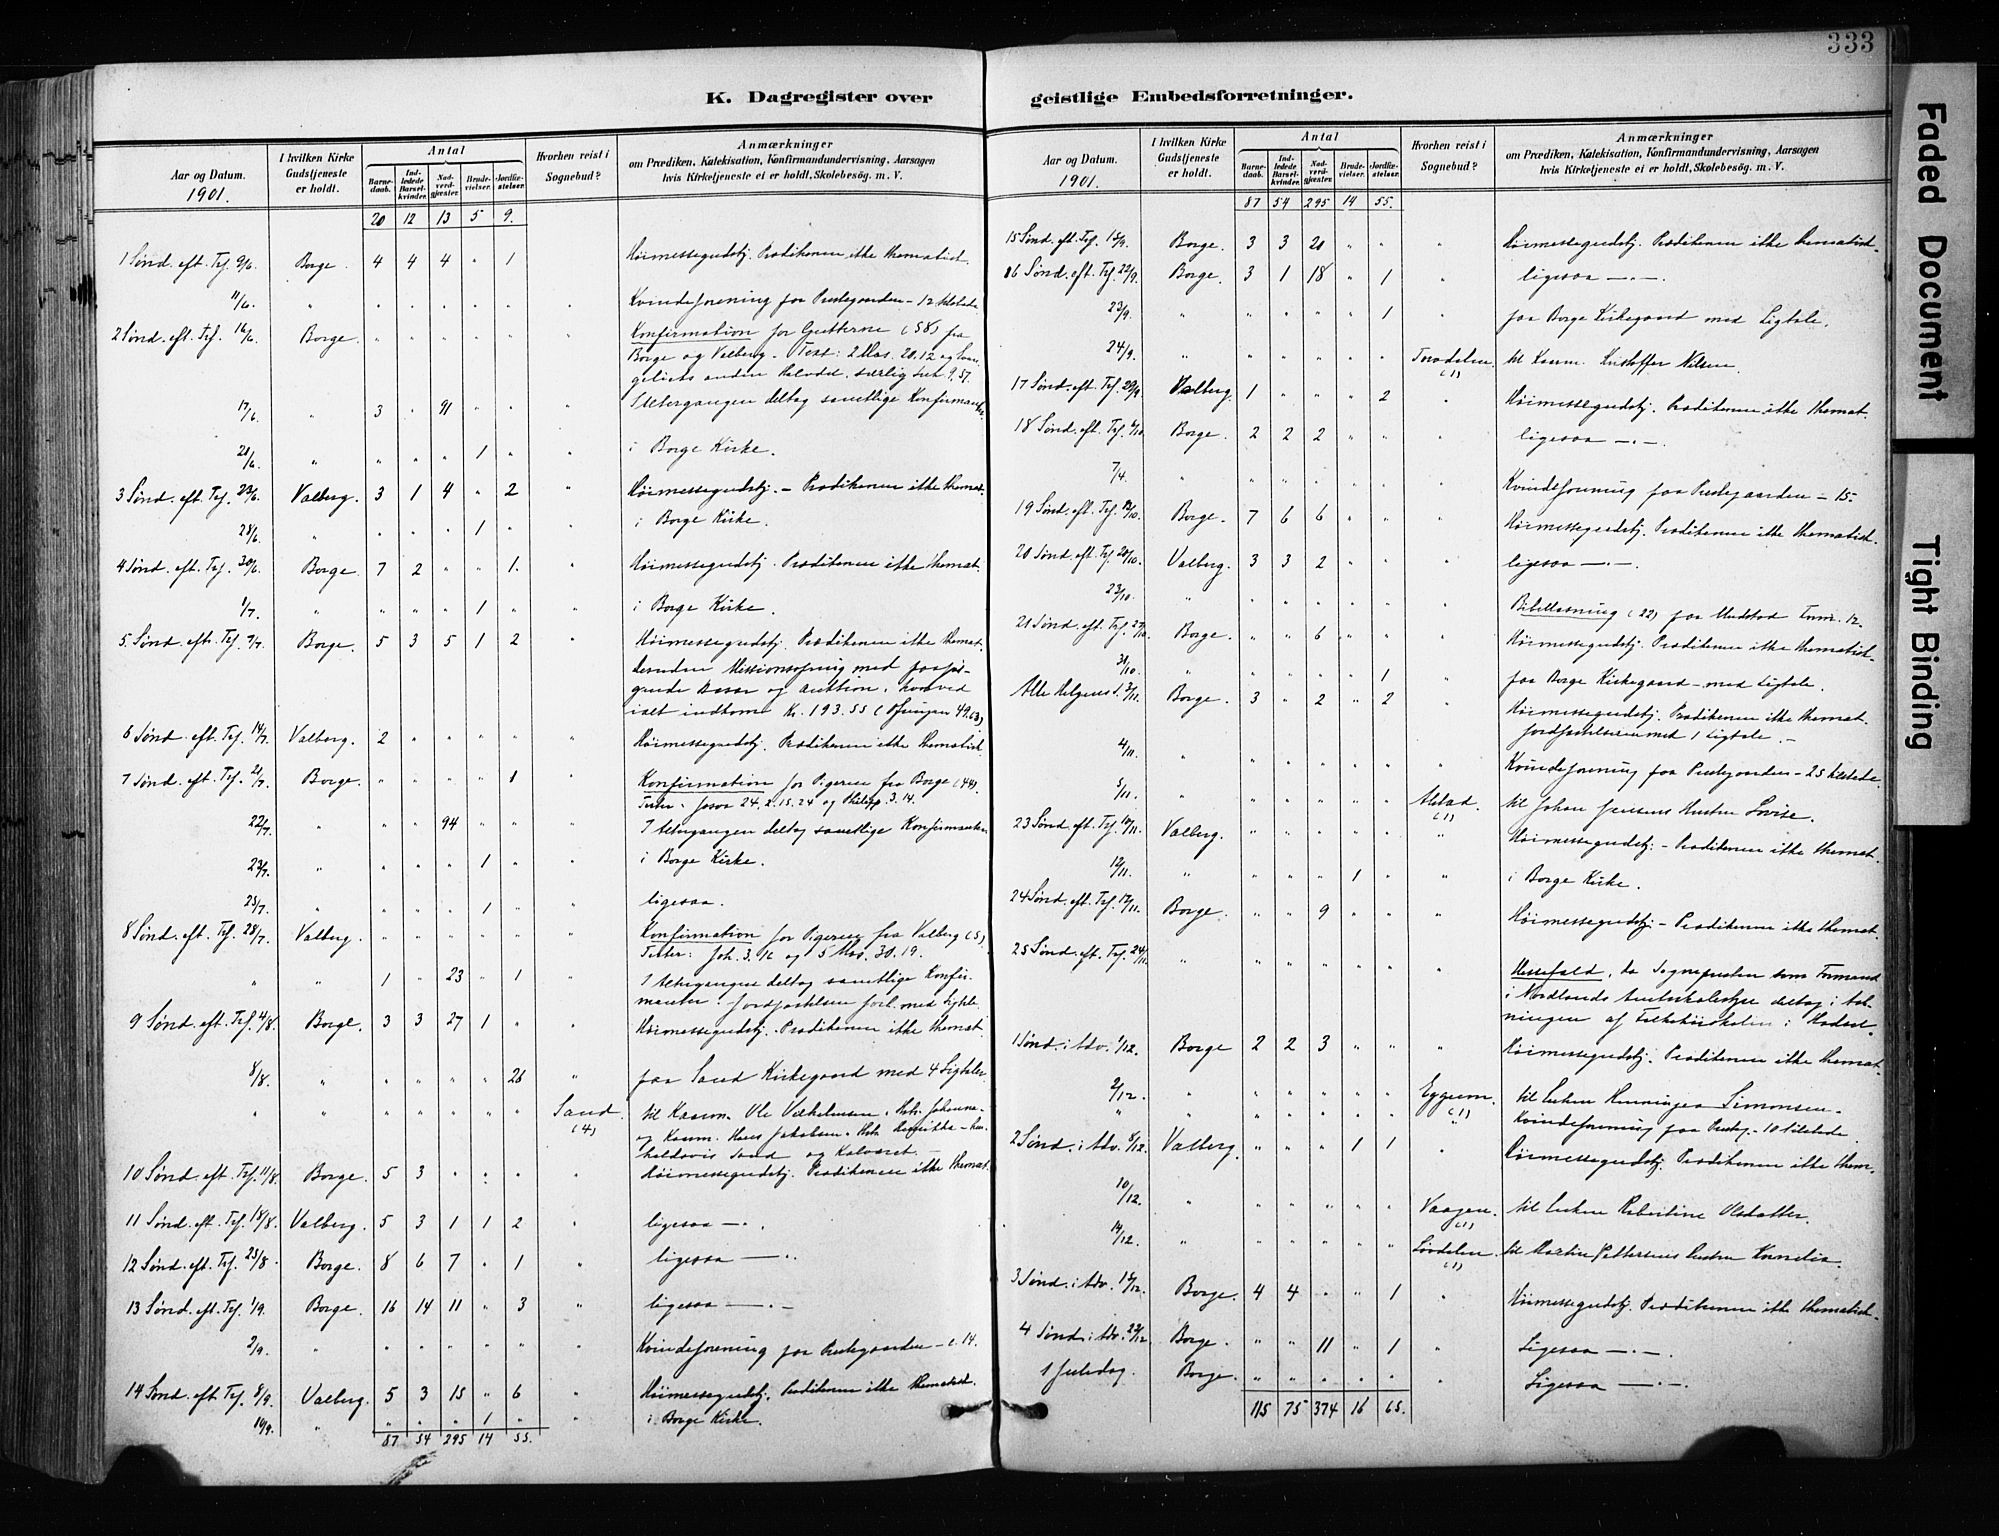 333
K. Dagregister over geistlige Embedsforretninger.
Aar og Datum. 1901. | I hvilken Kirke Gudstjeneste er holdt. | Antal: Barnedaab. | Indledede Barselkvinder. | Nadverdgjæster. | Brudevielser. | Jordfæstelser. | Hvorhen reist i Sognebud? | Anmærkninger om Prædiken, Katekisation, Konfirmandundervisning, Aarsagen hvis Kirketjeneste ei er holdt, Skolebesög. m. V.
20 12 13 5 9.
1 Sønd. eft. Tref. 9/6. Borge. 4 4 4 " 1 Høimessegudstj. Prædikenen ikke thematisk.
11/6. " " " " " " " Kvindeforening paa Prestegaarden - 12 tilstede
2 Sønd. eft. Tref. 16/6. Borge. " " " " " " Konfirmation for Gutterne (58) fra
Borge og Valberg. Text: 2 Mos. 20.12 og Evan-
geliets anden Halvdel, særlig Luk 9.57.
17/6. " 3 " 91 " " " I Altergangen deltog samtlige Konfirmander.
21/6. " " " " 1 " " i Borge Kirke.
3 Sønd. eft. Tref. 23/6. Valberg. 3 1 4 " 2 " Høimessegudstj. - Prædikenen ikke themat.
28/6. " " " " 1 " " i Borge Kirke.
4 Sønd. eft. Tref. 30/6. Borge. 7 2 " " 1. " Høimessegudstj. Prædikenen ikke themat.
1/7. " " " " 1 " " i Borge Kirke.
5 Sønd. eft. Tref. 7/7. Borge. 5 3 5 1 2 " Høimessegudstj. Prædikenen ikke themat.
desuden Missionsofring med paaføl-
gende Basar og Auktion, hvorved
ialt indkom Kr. 193.55 (Ofringen 49.03)
6 Sønd. eft. Tref. 14/7. Valberg. 2 " " " " " Høimessegudstj. Prædikenen ikke thematisk
7 Sønd. eft. Tref. 21/7. Borge. " " " " 1 " Konfirmation for Pigerne fra Borge (44).
Texter: Josva 24. 2.15.24 og Philipp. 3.14.
22/7. " " " 94 " " " I Altergangen deltog samtlige Konfirmanter
23/7. " " " " 1 " " i Borge Kirke.
25/7. " " " " 1 " " ligesaa.
8 Sønd. eft. Tref. 28/7. Valberg. " " " " " " Konfirmation for Pigerne fra Valberg (5).
Texter: Joh. 3.16 og 5 Mos. 30.19.
" " 1 " 23 " 1 " I Altergangen deltog samtlige Konfir-
manter. Jordfæstelsen forl. med Ligtale.
9 Sønd. eft. Tref. 4/8. Borge. 3 3 27 1 " " Høimessegudstj. Prædikenen ikke themat.
8/8. " " " " " 26 " paa Sand Kirkegaard med 4 Ligtaler.
" " " " " " " Sand (4) til Kaarm. Ole
og Kaarm. Hans Jakobsen
Sand og
10 Sønd. eft. Tref. 11/8. Borge. 5 3 " " " " Høimessegudstj. Prædikenen ikke themat.
11 Sønd. eft. Tref. 18/8. Valberg. 5 3 1 1 2 " ligesaa — " .
12 Sønd. eft. Tref. 25/8. Borge. 8 6 7 " 1 " ligesaa — " .
13 Sønd. eft. Tref. 1/9. Borge. 16 14 11 " 3 " ligesaa — " —
2/9. " " " " " " " Kvindeforening paa Prestegaarden - c. 14.
14 Sønd. eft. Tref. 8/9. Valberg. 5 3 15 " 6 " Høimessegudstj. Prædikenen ikke thematisk.
" " " " 1 " " i Borge Kirke.
87 54 295 14 55.
Aar og Datum. 1901. | I hvilken Kirke Gudstjeneste er holdt. | Antal: Barnedaab. | Indledede Barselkvinder. | Nadverdgjæster. | Brudevielser. | Jordfæstelser. | Hvorhen reist i Sognebud? | Anmærkninger om Prædiken, Katekisation, Konfirmandundervisning, Aarsagen hvis Kirketjeneste ei er holdt, Skolebesög. m. V.
87 54 295 14 55.
15 Sønd. eft. Tref. 15/9. Borge. 3 3 20 " " " Høimessegudstj. Prædikenen ikke thematisk.
16 Sønd. eft. Tref. 22/9. Borge. 3 1 18 " 1 " ligesaa — " —
23/9. " " " " " 1 " paa Borge Kirkegaard med Ligtale.
24/9. " " " " " " (1) til Kaarm. Kristoffer Nilsen.
17 Sønd. eft. Tref. 29/9. Valberg. 1 " " " 2 " Høimessegudstj. Prædikenen ikke themat.
18 Sønd. eft. Tref. 6/10. Borge. 2 2 2 " " " ligesaa — " —
7/4. " " " " " " " Kvindeforening paa Prestegaarden - 15.
19 Sønd. eft. Tref. 13/10. Borge. 7 6 6 " " " Høimessegudstj. Prædikenen ikke thematisk.
20 Sønd. eft. Tref. 20/10. Valberg. 3 3 2 " " " ligesaa — " —
23/10. " " " " " " " Bibellæsning (22) paa
21 Sønd. eft. Tref. 27/10. Borge. " " 6 " " " Høimessegudstj. Prædikenen ikke thematisk.
31/10. " " " " " 1 " paa Borge Kirkegaard - med Ligtale.
Alle Helgens S. 3/11. Borge. 3 " 2 " 2 " Høimessegudstj. Prædikenen ikke themat.
Jordfæstelserne med 1 Ligtale. -
4/11. " " " " " " " Kvindeforening paa Prestegaarden - 25 tilstede
5/11. " " " " " " Alstad. (1) til Johan Jensens Hustru Lovise.
23 Sønd. eft. Tref. 10/11. Valberg. " " " " " " Høimessegudstj. - Prædikenen ikke themat.
12/11. " " " " 1 " " i Borge Kirke.
24 Sønd. eft. Tref. 17/11. Borge. " " 9 " " " Høimessegudstj. - Prædikenen ikke themat.
25 Sønd. eft. Tref. 24/11. " " " " " " " Messefald, da Sognepresten som Formand
i Nordlands Amtsskolestyre deltog i Aab-
ningen af Folkehøiskolen i Hadsel.
1 Sønd. i Adv. 1/12. Borge 2 2 3 " " " Høimessegudstj. Prædikenen ikke themat.
2/12. " " " " " " Eggum. (1) til Enken Henningea Simonsen.
" " " " " " " " Kvindeforening paa Prestg. - 10 tilstede.
2 Sønd. i Adv. 8/12. Valberg. " " " 1 1 " Høimessegudstj. Prædikenen ikke them.
10/12. " " " " " " Vaagen. (1) til Enken Robertine Olsdatter.
14/12. " " " " " " (1) til Martin Pettersens Enke Kornelia.
3 Sønd. i Adv. 15/12. Borge. 4 4 " " 1 " Høimessegudstj. Prædikenen ikke thematisk.
4 Sønd. i Adv. 22/12. Borge. " " 11 " 1 " Ligesaa — " —
1 Juledag. Borge. " " " " " " Ligesaa — " —
115 75 374 16 65.
Faded Document
Tight Binding